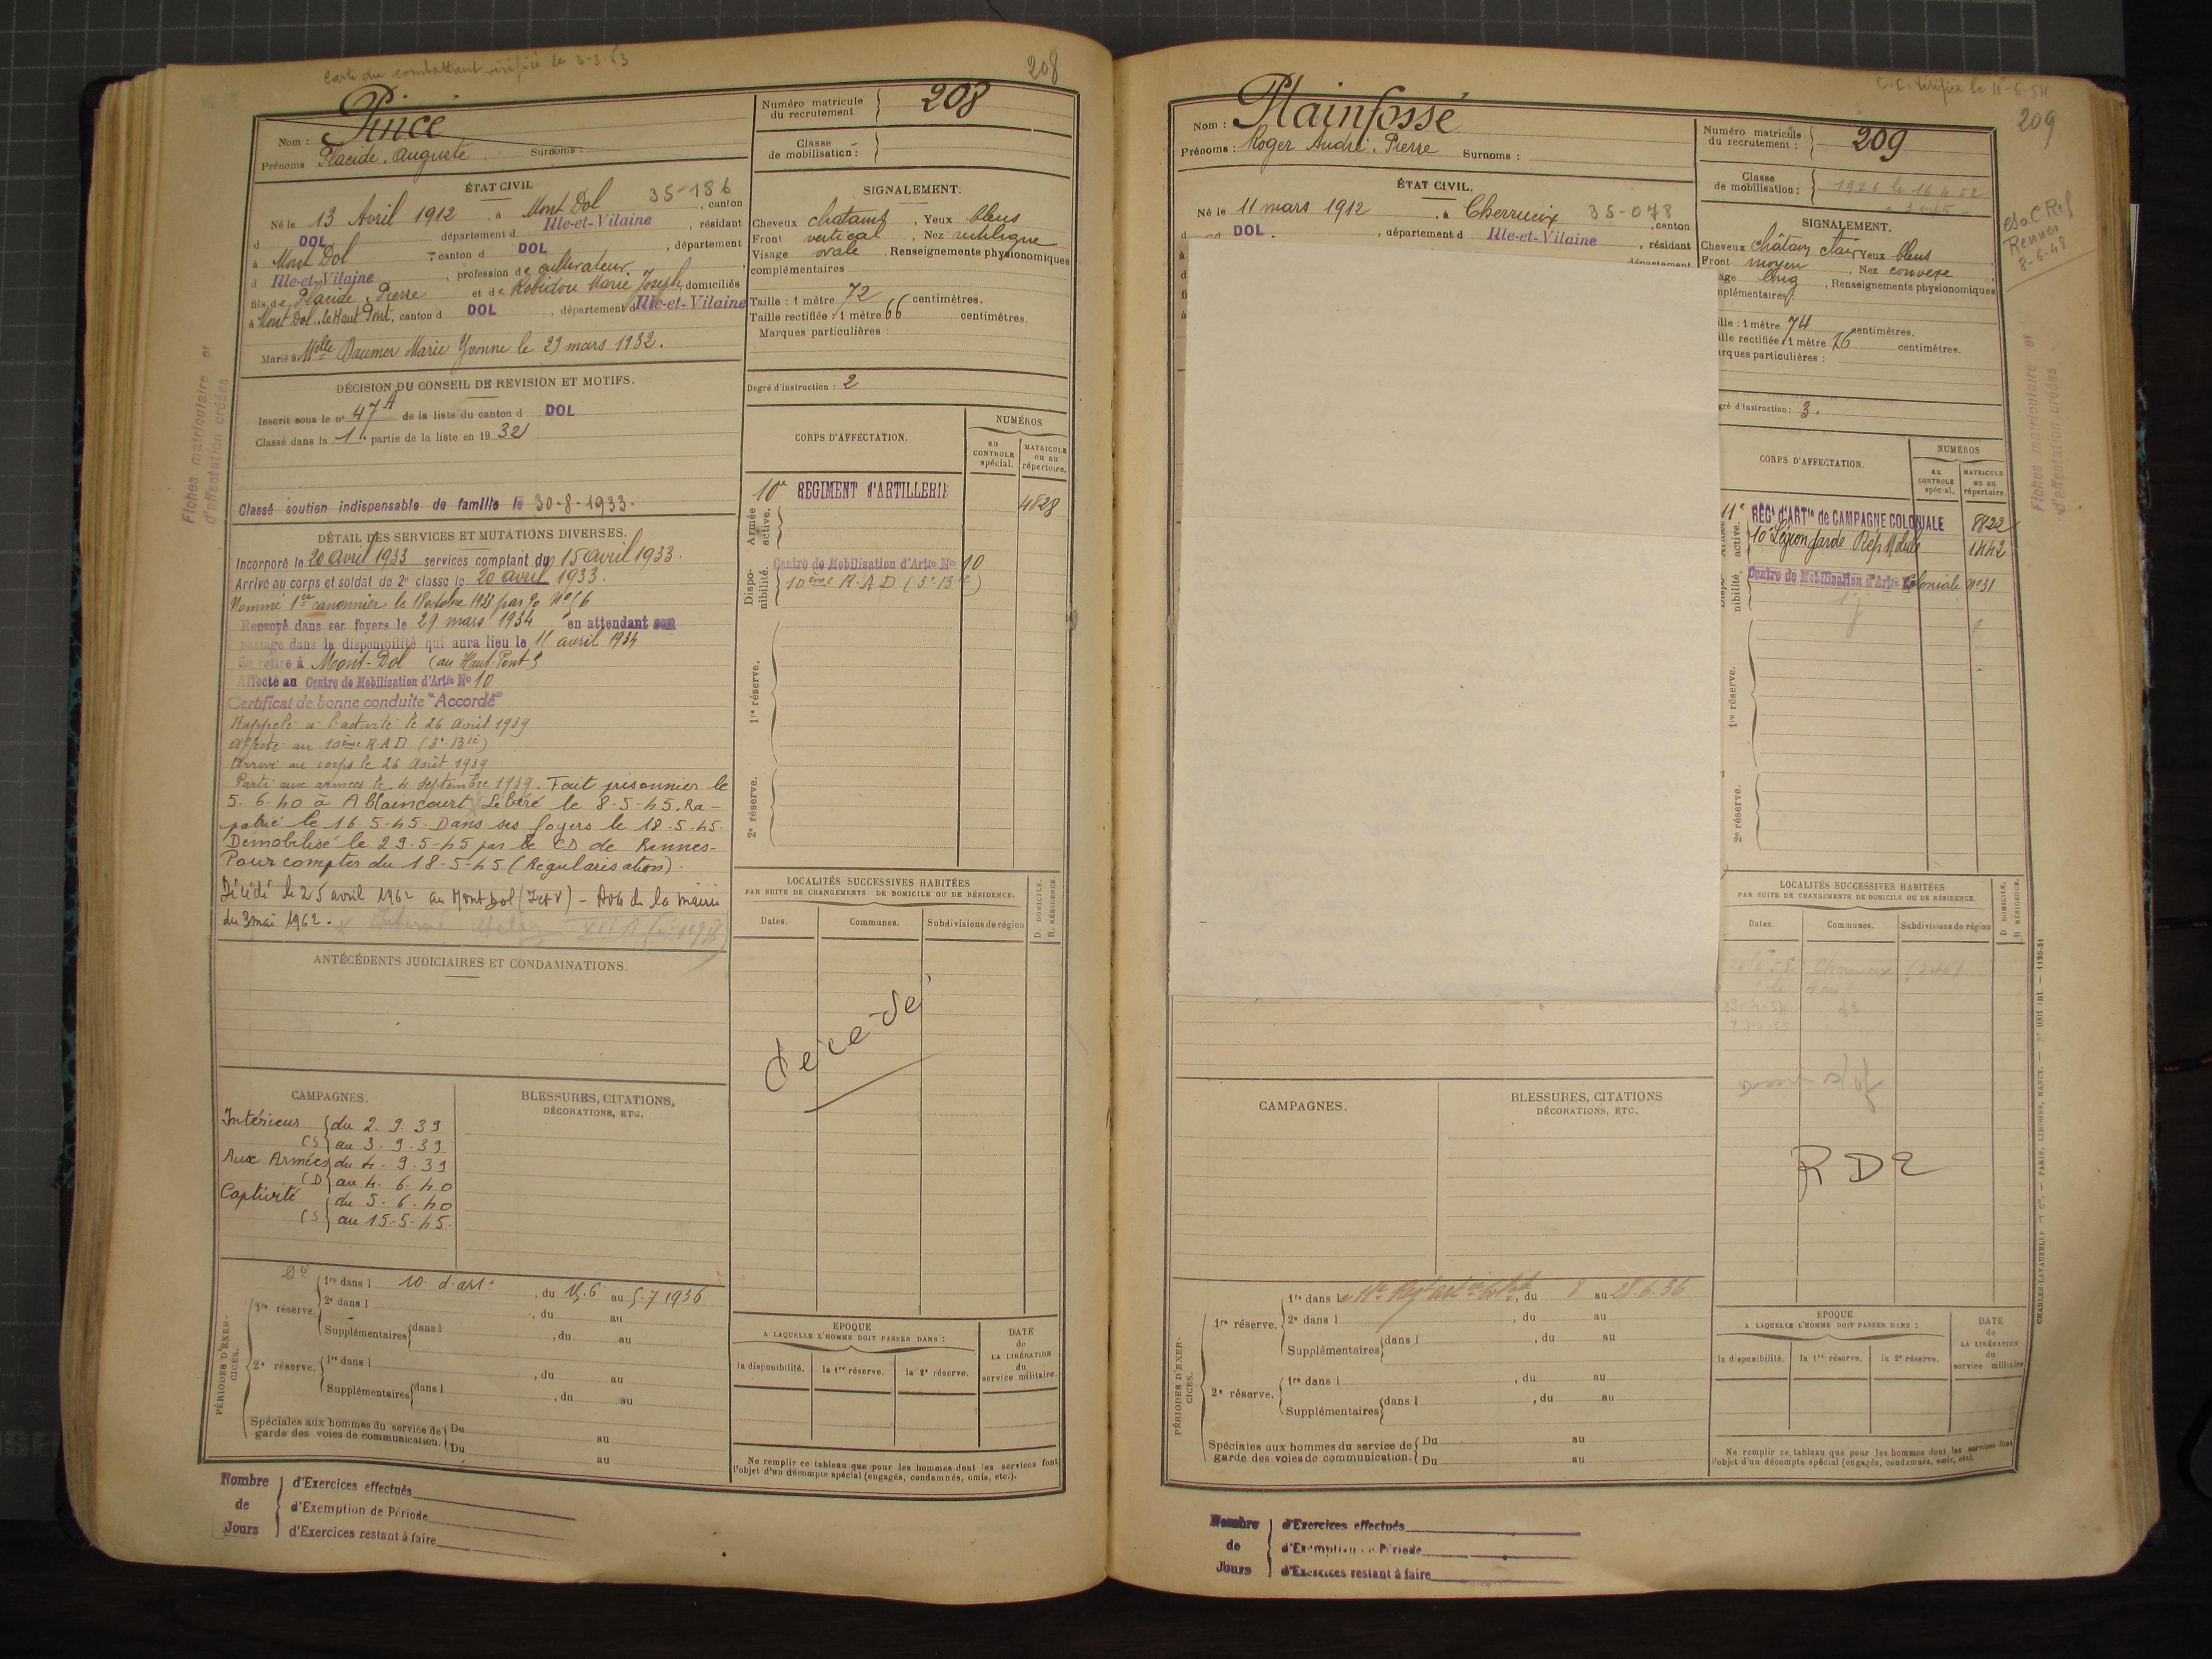 Carte du combattant vérifiée le 3-3-63
208
Nom : Pincé
Prénoms Placide. Auguste Surnoms :
Numéro matricule du recrutement 208
Classe de mobilisation :
ÉTAT CIVIL
35-186
Né le 13 Avril 1912, à Mont Dol, canton
d DOL département d Ille-et-Vilaine, résidant
à Mont Dol, canton d DOL, département
d Ille-et-Vilaine, profession de cultivateur
fils de Placide, Pierre et de Robidou Marie Joseph, domiciliés
à Mont Dol, le Haut Pont, canton d DOL, département d Ille-et-Vilaine
Marié à Melle Daumer Marie Yvonne le 29 mars 1932.
SIGNALEMENT.
Cheveux chatains, Yeux bleus
Front vertical, Nez rectiligne
Visage ovale, Renseignements physionomiques
complémentaires
Taille : 1 mètre 72 centimètres.
Taille rectifiée : 1 mètre 66 centimètres.
Marques particulières :
Degré d'instruction : 2
DÉCISION DU CONSEIL DE REVISION ET MOTIFS.
Inscrit sous le n° 47A de la liste du canton d DOL
Classé dans la 1e partie de la liste en 1932
Classé soutien indispensable de famille le 30-8-1933.
DÉTAIL DES SERVICES ET MUTATIONS DIVERSES.
Incorporé le 20 avril 1933 services comptant du 15 avril 1933.
Arrivé au corps et soldat de 2e classe le 20 avril 1933.
Nommé 1er canonnier le 18 octobre 1933 par
Renvoyé dans ses foyers le 29 mars 1934 en attendant son
passage dans la disponibilité qui aura lieu le 11 avril 1934
Se retire à Mont-Dol (au Haut-Pont)
Affecté au Centre de Mobilisation d'Artie No 10
Certificat de bonne conduite "Accordé"
Rappelé à l'activité le 26 Août 1939
Affecté au 10ème R.A.D (3e Bie)
Arrivé au corps le 26 Août 1939
Parti aux armées le 4 septembre 1939. Fait prisonnier le
5.6.40 à Ablaincourt Libéré le 8-5-45. Ra-
patrié le 16.5-45. Dans ses foyers le 18.5.45.
Démobilisé le 29.5-45 par le CD de Rennes-
Pour compter du 18-5-45 (Régularisation).
Décédé le 25 avril 1962 au Mont Dol (I et V) - Avis de la mairie
du 3 mai 1962.
CORPS D'AFFECTATION.
NUMÉROS
AU CONTROLE spécial.
MATRICULE ou au répertoire.
Armée active.
10e REGIMENT d'ARTILLERIE 4828
Disponibilité.
Centre de Mobilisation d'Artie No 10
10ème R.A.D (3e Bie)
1re réserve.
2e réserve.
ANTÉCÉDENTS JUDICIAIRES ET CONDAMNATIONS.
LOCALITÉS SUCCESSIVES HABITÉES
PAR SUITE DE CHANGEMENTS DE DOMICILE OU DE RÉSIDENCE.
Dates. Communes. Subdivisions de région
D. DOMICILE.
R. RÉSIDENCE.
décédé
CAMPAGNES.
Intérieur du 2.9.39
(S) au 3.9.39
Aux Armées du 4.9.39
(D) au 4.6.40
Captivité du 5.6.40
(S) au 15-5-45.
BLESSURES, CITATIONS,
DÉCORATIONS, ETC.
PÉRIODES D'EXERCICES.
1re réserve.
1re dans l 10. d'art., du 15.6 au 5.7 1936
2e dans l, du au
Supplémentaires dans l, du au
2e réserve.
1re dans l, du au
Supplémentaires dans l, du au
Spéciales aux hommes du service de garde des voies de communication.
Du au
Du au
EPOQUE
A LAQUELLE L'HOMME DOIT PASSER DANS :
la disponibilité. la 1re réserve. la 2e réserve.
DATE de LA LIBÉRATION du service militaire.
Ne remplir ce tableau que pour les hommes dont les services font
l'objet d'un décompte spécial (engagés, condamnés, omis, etc.).
Nombre de Jours
d'Exercices effectués
d'Exemption de Période
d'Exercices restant à faire
Fiches matriculaire et
d'affectation créées
C.C. vérifiée le 11-6-54
209
Nom : Plainfossé
Prénoms : Roger André. Pierre Surnoms :
Numéro matricule du recrutement : 209
Classe de mobilisation : 1926 le 16.4.52
Rennes
8-6-48
ÉTAT CIVIL.
Né le 11 mars 1912, à Cherrueix 35-078, canton
d DOL, département d Ille-et-Vilaine, résidant
SIGNALEMENT.
Cheveux châtain clair, Yeux bleus
Front moyen, Nez convexe
age long, Renseignements physionomiques
mplémentaires :
ille : 1 mètre 74 centimètres.
ille rectifiée 1 mètre 76 centimètres.
rques particulières :
gré d'instruction : 3.
CORPS D'AFFECTATION.
NUMÉROS
AU CONTROLE spécial.
MATRICULE ou au répertoire.
active.
11e RÉGt d'ARTie de CAMPAGNE COLONIALE 8822
10e Légion garde Rép Mobile 1442
nibilité.
Centre de Mobilisation d'Artie Coloniale No 31
1re réserve.
2e réserve.
LOCALITÉS SUCCESSIVES HABITÉES
PAR SUITE DE CHANGEMENTS DE DOMICILE OU DE RÉSIDENCE.
Dates. Communes. Subdivisions de région
D. DOMICILE.
R. RÉSIDENCE.
Cherrueix
RD2
CAMPAGNES.
BLESSURES, CITATIONS
DÉCORATIONS, ETC.
PÉRIODES D'EXERCICES.
1re réserve.
1re dans le 11e, du 8 au 28.6.36
2e dans l, du au
Supplémentaires dans l, du au
2e réserve.
1re dans l, du au
Supplémentaires dans l, du au
Spéciales aux hommes du service de garde des voies de communication.
Du au
Du au
EPOQUE
A LAQUELLE L'HOMME DOIT PASSER DANS :
la disponibilité. la 1re réserve. la 2e réserve.
DATE de LA LIBÉRATION du service militaire
Ne remplir ce tableau que pour les hommes dont les services font
l'objet d'un décompte spécial (engagés, condamnés, omis, etc).
Nombre de Jours
d'Exercices effectués
d'Exemption de Période
d'Exercices restant à faire
Fiches matriculaire et
d'affectation créées
CHARLES-LAVAUZELLE ET Cie. — PARIS, LIMOGES, NANCY.